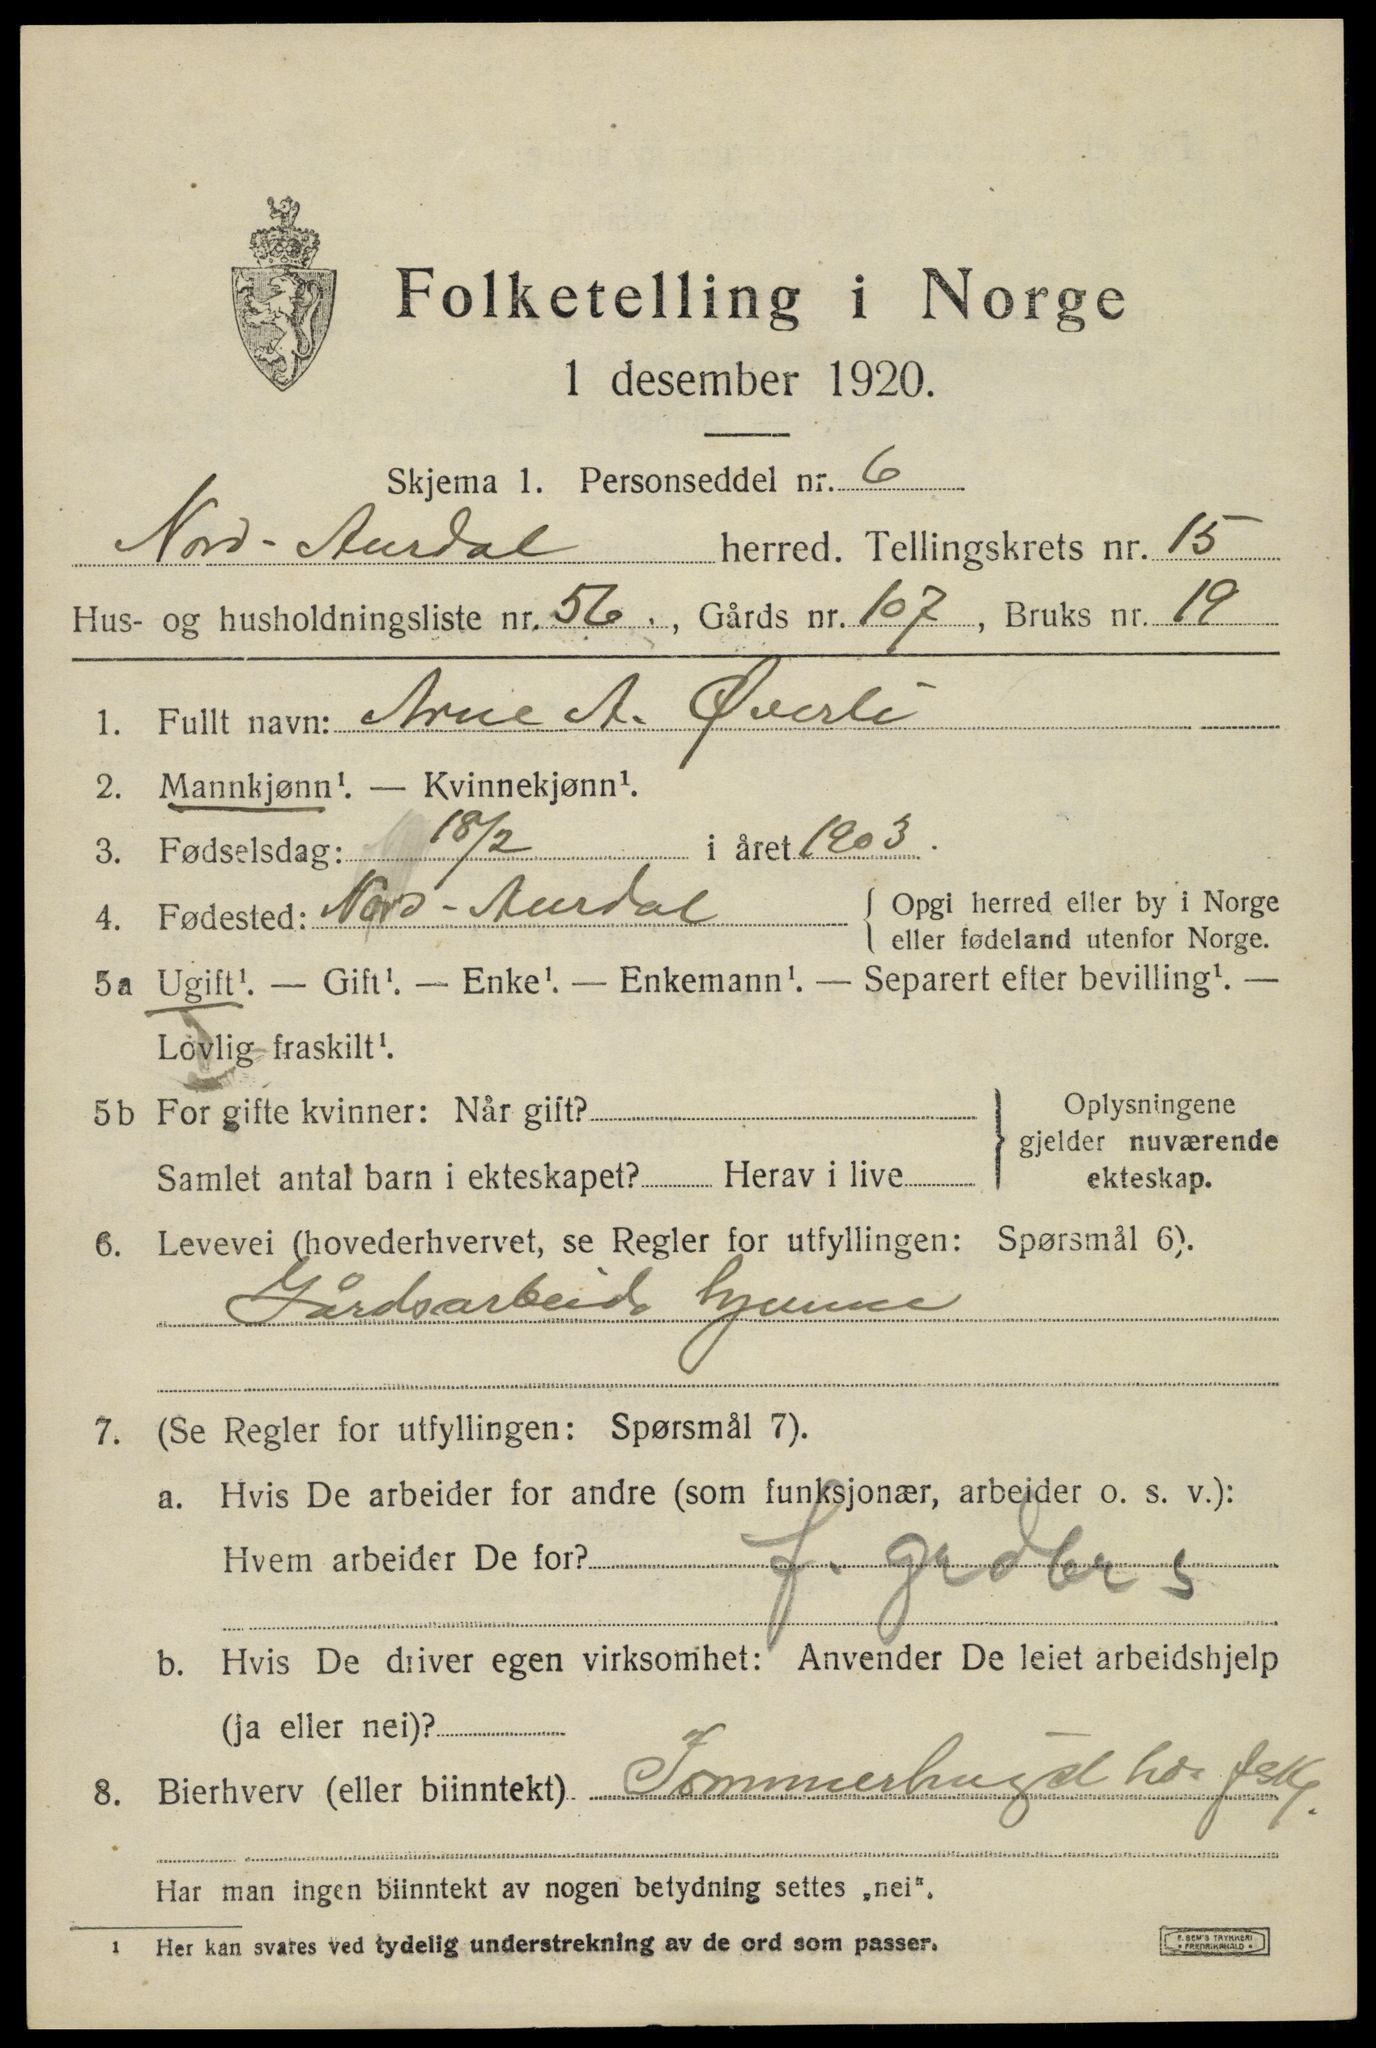 Folketelling i Norge
1 desember 1920.
Skjema 1. Personseddel nr. 6
Nord-Aurdal herred. Tellingskrets nr. 15
Hus- og husholdningsliste nr. 56., Gårds nr. 107, Bruks nr. 19
1. Fullt navn: Arne A. Øverli
2. Mannkjønn¹. — Kvinnekjønn¹.
3. Fødselsdag: 18/2 i året 1903.
4. Fødested: Nord-Aurdal { Opgi herred eller by i Norge
eller fødeland utenfor Norge.
5a Ugift¹. — Gift¹. — Enke¹. — Enkemann¹. — Separert efter bevilling¹. —
Lovlig fraskilt¹.
5b For gifte kvinner: Når gift? } Oplysningene
gjelder nuværende
Samlet antal barn i ekteskapet? Herav i live ekteskap.
6. Levevei (hovederhvervet, se Regler for utfyllingen: Spørsmål 6).
Gårdsarbeide hjemme
7. (Se Regler for utfyllingen: Spørsmål 7).
a. Hvis De arbeider for andre (som funksjonær, arbeider o. s. v.):
Hvem arbeider De for? f. grdbr s
b. Hvis De driver egen virksomhet: Anvender De leiet arbeidshjelp
(ja eller nei)?
8. Bierhverv (eller biinntekt) Tømmerhugst hos
Har man ingen biinntekt av nogen betydning settes „nei“.
¹ Her kan svares ved tydelig understrekning av de ord som passer.
F. SEM'S TRYKKERI
• FREDRIKSHALD •